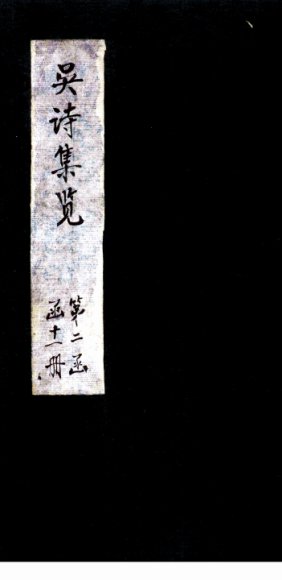 吴诗集览
第二函
函十一册